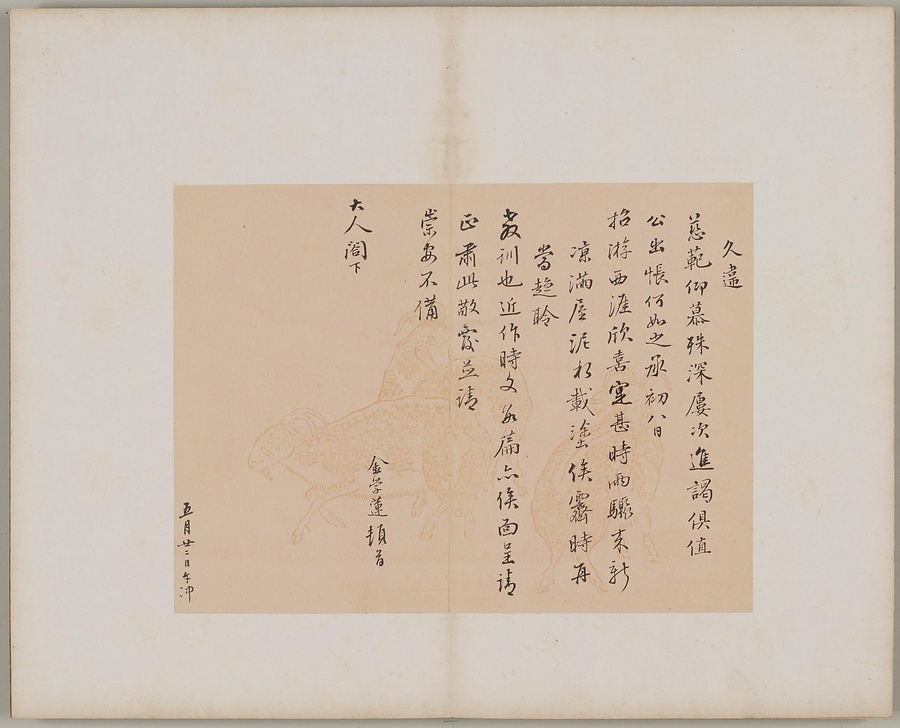 久違
慈範仰慕殊深屢次進謁俱值
公出悵何如之承初八日
招游西涯欣喜寔甚時雨驟來新
涼滿座泥水載塗俟霽時再
當趨聆
教訓也近作時文数篇亦俟面呈請
正肅此敬覆並請
崇安不備
大人閤下
金學蓮頓首
五月廿二日午沖